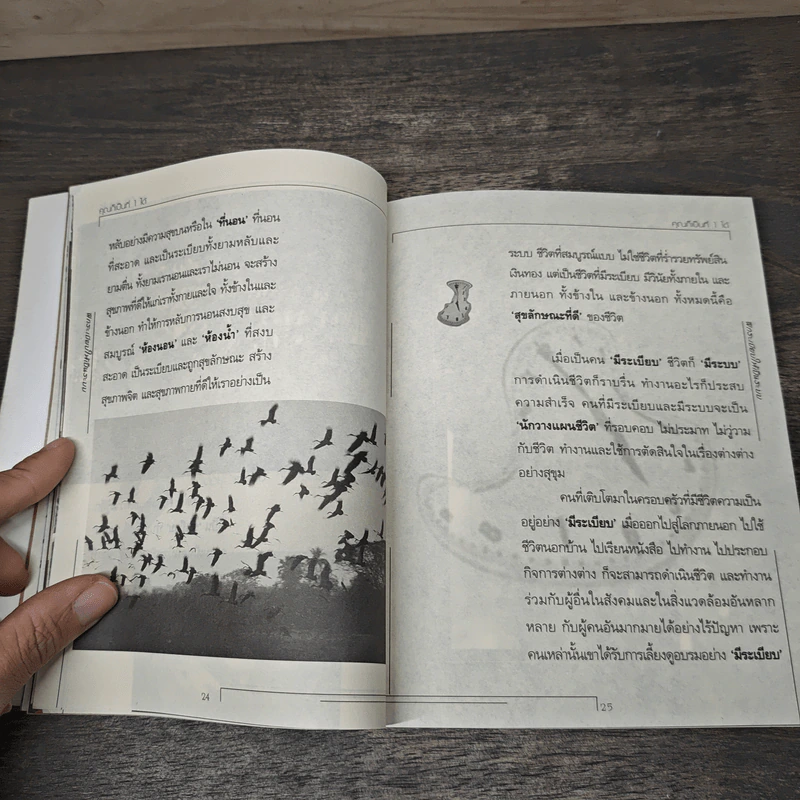 คุณก็เป็นที่ 1 ได้
หลับอย่างมีความสุขบนหรือใน ‘ที่นอน’ ที่นอน
ที่สะอาด และเป็นระเบียบทั้งยามหลับและ
ยามตื่น ทั้งยามเรานอนและเราไม่นอน จะสร้าง
สุขภาพที่ดีให้แก่เราทั้งกายและใจ ทั้งข้างในและ
ข้างนอก ทำให้การหลับการนอนสงบสุข และ
สมบูรณ์ ‘ห้องนอน’ และ ‘ห้องน้ำ’ ที่สงบ
สะอาด เป็นระเบียบและถูกสุขลักษณะ สร้าง
สุขภาพจิต และสุขภาพกายที่ดีให้เราอย่างเป็น
24
คุณก็เป็นที่ 1 ได้
ระบบ ชีวิตที่สมบูรณ์แบบ ไม่ใช่ชีวิตที่ร่ำรวยทรัพย์สิน
เงินทอง แต่เป็นชีวิตที่มีระเบียบ มีวินัยทั้งภายใน และ
ภายนอก ทั้งข้างใน และข้างนอก ทั้งหมดนี้คือ
‘สุขลักษณะที่ดี’ ของชีวิต
เมื่อเป็นคน ‘มีระเบียบ’ ชีวิตก็ ‘มีระบบ’
การดำเนินชีวิตก็ราบรื่น ทำงานอะไรก็ประสบ
ความสำเร็จ คนที่มีระเบียบและมีระบบจะเป็น
‘นักวางแผนชีวิต’ ที่รอบคอบ ไม่ประมาท ไม่วู่วาม
กับชีวิต ทำงานและใช้การตัดสินใจในเรื่องต่างต่าง
อย่างสุขุม
คนที่เติบโตมาในครอบครัวที่มีชีวิตความเป็น
อยู่อย่าง ‘มีระเบียบ’ เมื่อออกไปสู่โลกภายนอก ไปใช้
ชีวิตนอกบ้าน ไปเรียนหนังสือ ไปทำงาน ไปประกอบ
กิจการต่างต่าง ก็จะสามารถดำเนินชีวิต และทำงาน
ร่วมกับผู้อื่นในสังคมและในสิ่งแวดล้อมอันหลาก
หลาย กับผู้คนอันมากมายได้อย่างไร้ปัญหา เพราะ
คนเหล่านั้นเขาได้รับการเลี้ยงดูอบรมอย่าง ‘มีระเบียบ’
25